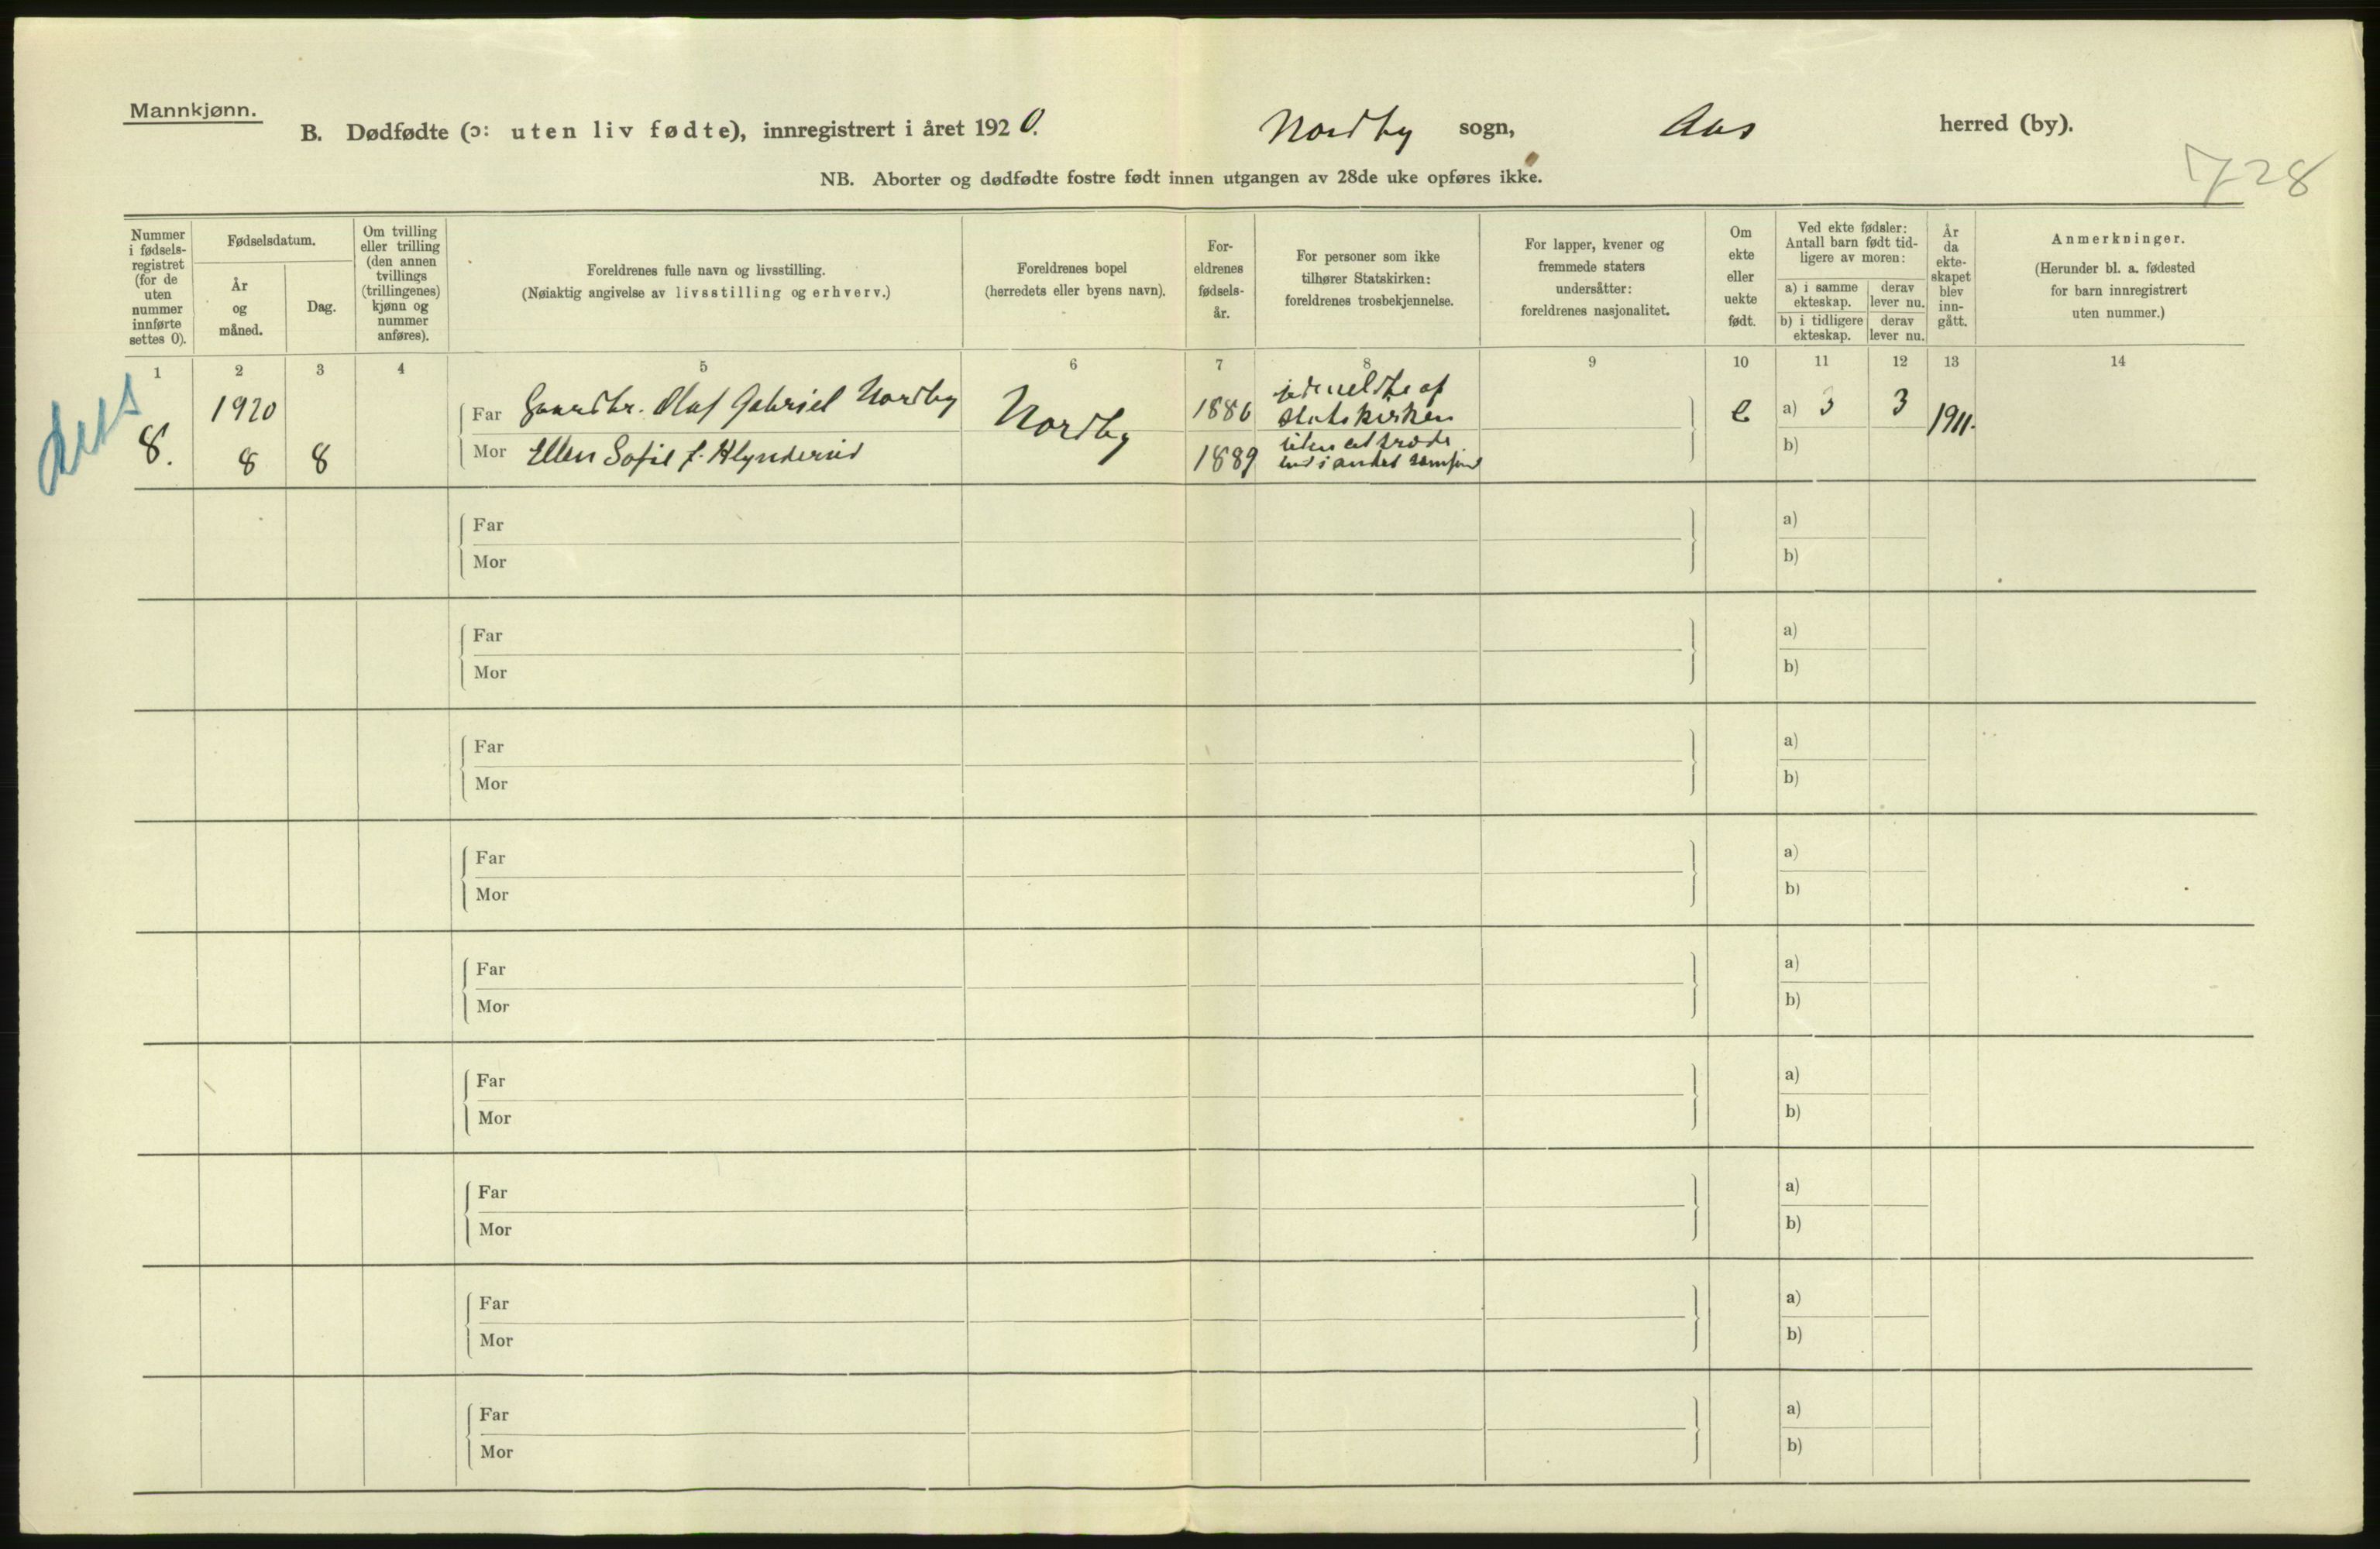 Mannkjønn.
B. Dødfødte (ɔ: uten liv fødte), innregistrert i året 1920. Nordby sogn, Aas herred (by).
NB. Aborter og dødfødte fostre født innen utgangen av 28de uke opføres ikke.
728
Nummer i fødsels-registret (for de uten nummer innførte settes 0).
Fødselsdatum.
År og måned.
Dag.
Om tvilling eller trilling (den annen tvillings (trillingenes) kjønn og nummer anføres).
Foreldrenes fulle navn og livsstilling.
(Nøiaktig angivelse av livsstilling og erhverv.)
Foreldrenes bopel
(herredets eller byens navn).
For-eldrenes fødsels-år.
For personer som ikke tilhører Statskirken: foreldrenes trosbekjennelse.
For lapper, kvener og fremmede staters undersåtter: foreldrenes nasjonalitet.
Om ekte eller uekte født.
Ved ekte fødsler: Antall barn født tid-ligere av moren:
a) i samme ekteskap.
derav lever nu.
b) i tidligere ekteskap.
derav lever nu.
År da ekte-skapet blev inn-gått.
Anmerkninger.
(Herunder bl. a. fødested for barn innregistrert uten nummer.)
1 2 3 4 5 6 7 8 9 10 11 12 13 14
8. 1920 8 8
Far Gaardbr. Olaf Gabriel Nordby
Mor Ellen Sofie f.
Nordby
1886
1889
udmeldte af
statskirken
uten at træde
ind i andet samfund
e
a) 3 3 1911.
b)
Far a)
Mor b)
Far a)
Mor b)
Far a)
Mor b)
Far a)
Mor b)
Far a)
Mor b)
Far a)
Mor b)
Far a)
Mor b)
Far a)
Mor b)
Far a)
Mor b)